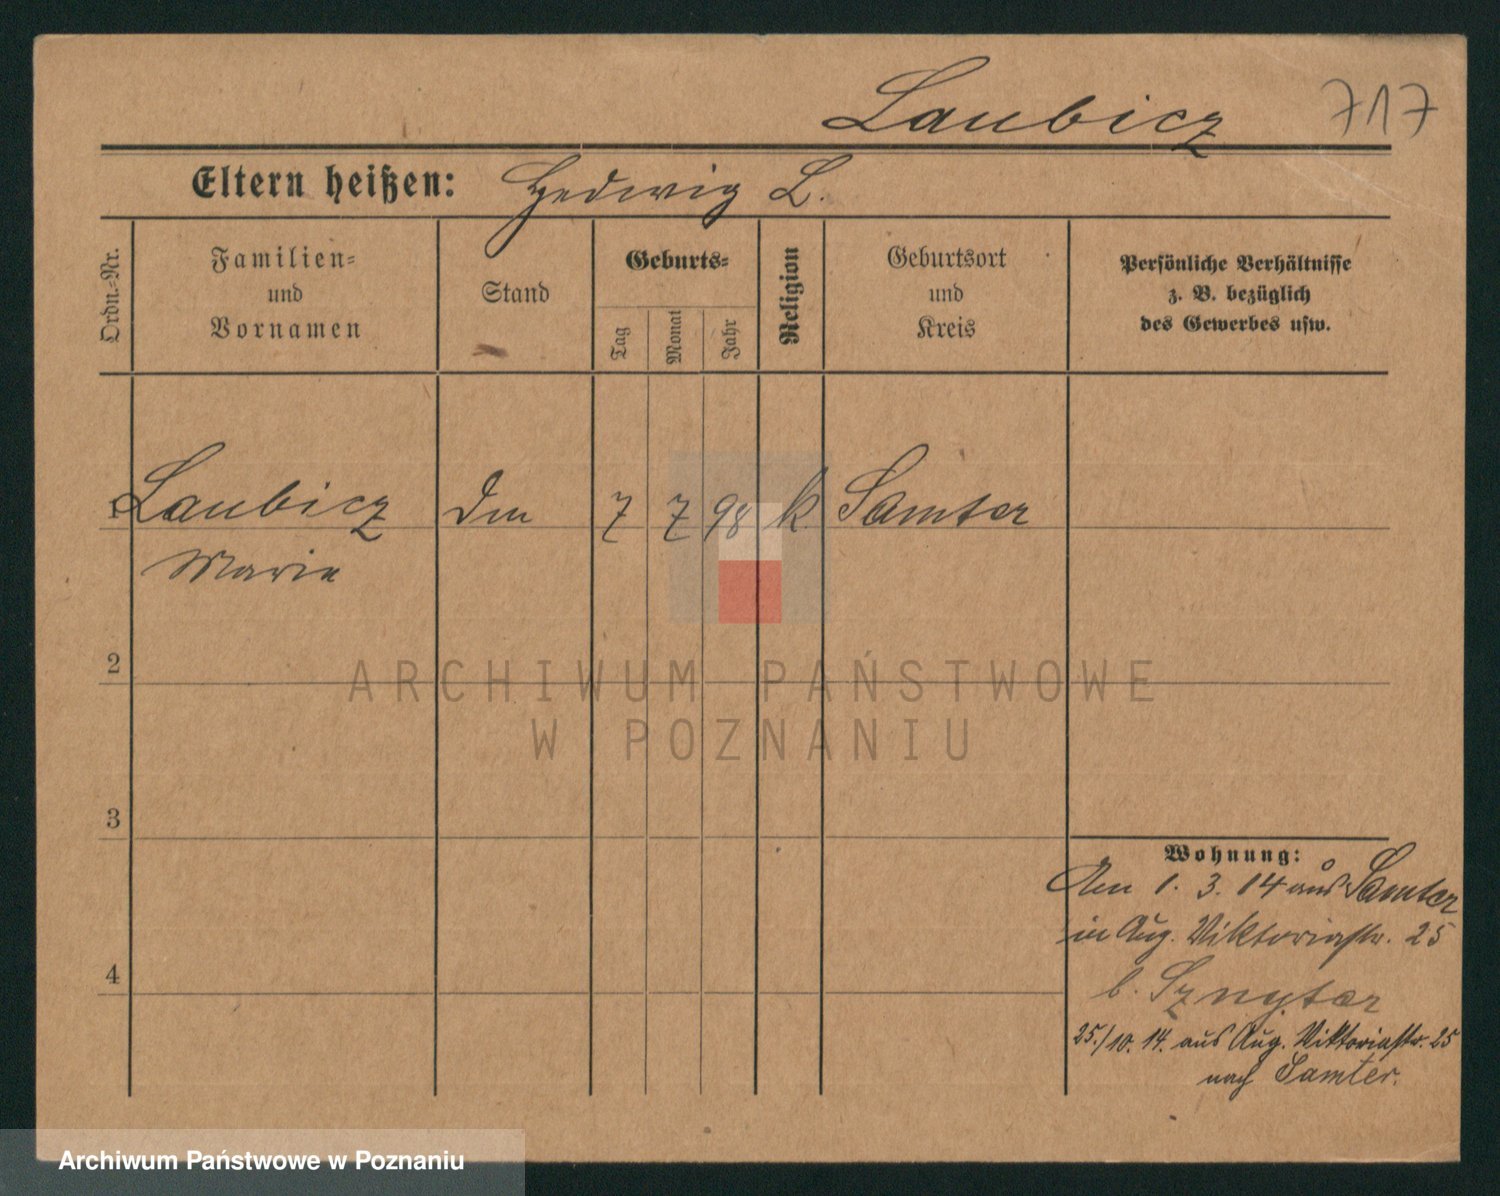 Laubicz 717
Eltern heißen: Hedwig L.
Ordn.-Nr.
Familien-
und
Vornamen
Stand
Geburts-
Tag
Monat
Jahr
Religion
Geburtsort
und
Kreis
Persönliche Verhältnisse
z. B. bezüglich
des Gewerbes usw.
1 Laubicz 7 7 98 k Samter
Marie
2
3
4
Wohnung:
Am 1. 3. 14 aus Samter
in Aug. Viktoriastr. 25
b. Sznyter
25./10. 14. aus Aug. Viktoriastr. 25
nach Samter.
ARCHIWUM PAŃSTWOWE
W POZNANIU
Archiwum Państwowe w Poznaniu